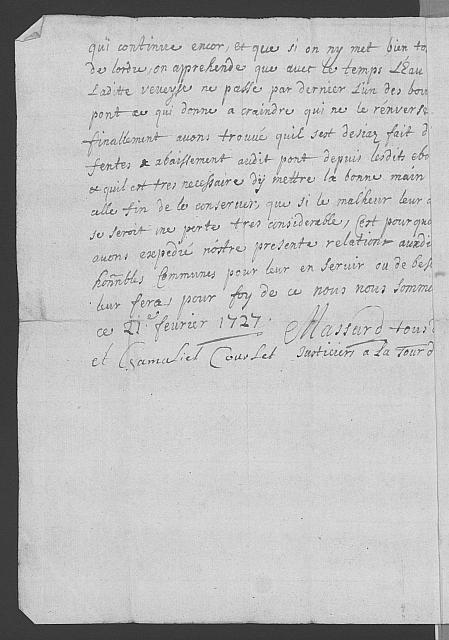 qui continue encor, et que si on ny met bien to
de lordre, on apprehende que avec le temps L'Eau
Ladite veveyse ne passe par dernier Lun des bou
pont ce qui donne a craindre qui ne le renverse
finallement avons trouvé quil sest desiaz fait d
fentes & abaissement audit pont depuis lesdits ebo
& quil est tres necessaire dy mettre la bonne main
celle fin de le conserver, que si le malheur leur
se seroit une perte tres considerable, Cest pourquo
avons expedié nostre presente relation auxdi
honnbles Communes pour leur en servir ou de bes
leur fera, pour foy de ce nous nous somme
ce 21.e fevrier 1727. Massard tous
et Gamaliel Couslet Justiciers a La Tour d